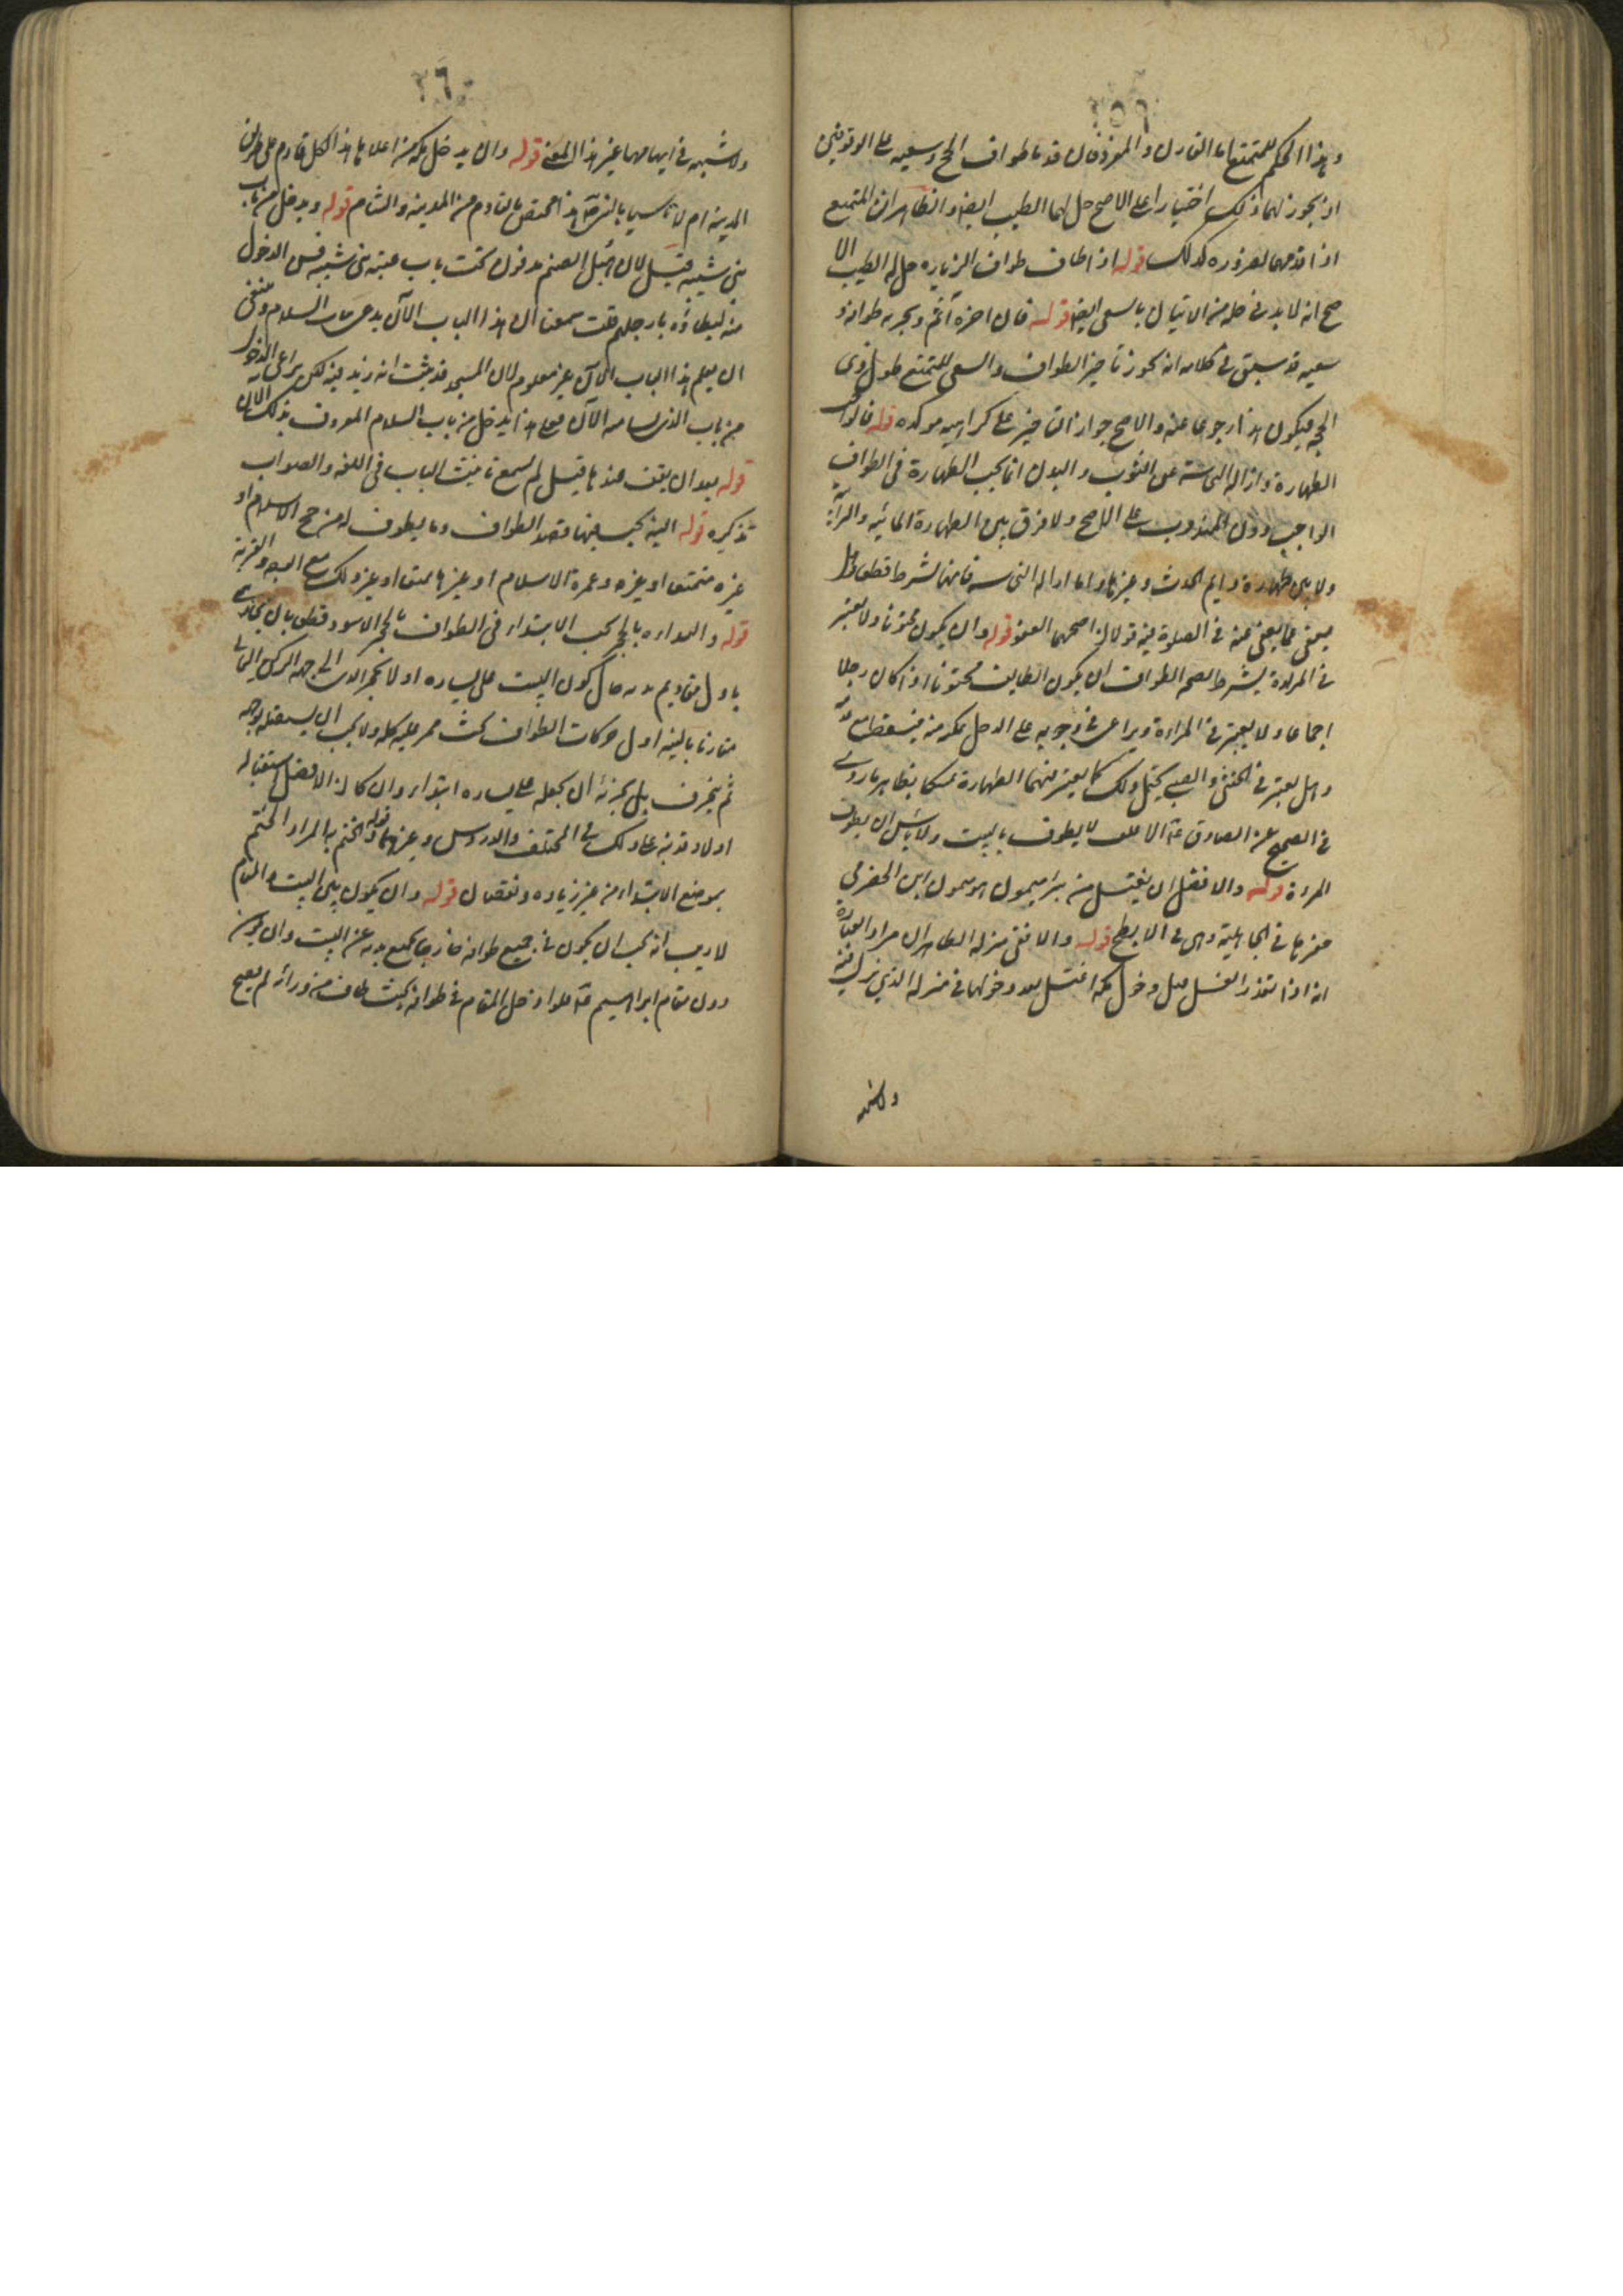 ٢٥٩
وهذا الحكم للمتمتع اما القارن والمفرد فان قدما طواف الحج وسعيه على الوقوفين
اذ يجوز لهما ذلك اختيارا على الاصح حل لهما الطيب ايضا والظاهر ان المتمتع
اذا قدمهما لضرورة كذلك قوله اذا طاف طواف الزيارة حل له الطيب الا
صح انه لا بد في حله من الاتيان بالسعي ايضا قوله فان اخره اثم ويجزيه طوافه و
سعيه قد سبق في كلامه انه يجوز تاخير الطواف والسعي للمتمتع طول ذي
الحجه فيكون هذا رجوعا عنه والاصح جواز التاخير على كراهيه موكده قوله فالواجب
الطهارة وازالة النجاسة عن الثوب والبدن انما يجب الطهارة في الطواف
الواجب دون المندوب على الاصح ولا فرق بين الطهارة المائيه والترابية
ولا بين طهارة دايم الحدث وغيرها واما ازاله النجاسه فانها شرط قطعا وهل
يعفى عما يعفى عنه في الصلوة فيه قولان اصحهما العفو قوله وان يكون مختونا ولا يعتبر
في المراة يشترط لصحه الطواف ان يكون الطايف مختونا اذا كان رجلا
اجماعا ولا يعتبر في المراة ويراعى في وجوبه على الرجل تمكنه منه فيسقط مع عدمه
وهل يعتبر في الخنثى والصبي يحتمل ذلك كما يعتبر فيهما الطهارة تمسكا بظاهر ما روي
في الصحيح عن الصادق ع الاغلف لا يطوف بالبيت ولا باس ان يطوف
المراة قوله والافضل ان يغتسل من بئر ميمون هو ميمون ابن الحضرمي
حفرها في الجاهلية وهي في الابطح قوله والا ففي منزله الظاهر ان مراد العباره
انه اذا تعذر الغسل قبل دخول مكه اغتسل بعد دخولها في منزله الذي ينزل فيه
ولا شبهه
٢٦٠
ولا شبهه في ابهامها غير هذا المعنى قوله وان يدخل مكه من اعلاها هذا لكل قادم على طريق
المدينه ام لا تاسيا بالنبي ص هذا مختص بالقادم من المدينه والشام قوله ويدخل من باب
بني شيبه قيل لان هبل الصنم مدفون تحت باب عتبه بني شيبه فسن الدخول
منه ليطاؤه بارجلهم قلت سمعنا ان هذا الباب الان يدعى باب السلام وينبغي
ان يعلم هذا الباب الان غير معلوم لان المسجد قد ثبت انه زيد فيه لكن يراعى الدخول
من باب الذي يسامته الان فعلى هذا يدخل من باب السلام المعروف بذلك الان
قوله بعد ان يقف عندها قيل لم يسمع تانيث الباب في اللغه والصواب
تذكيره قوله النيه يجب فيها قصد الطواف وما يطوف له من حج الاسلام او
غيره متمتعا او غيره وعمرة الاسلام او غيرها تمتعا او غير ذلك مع الوجه والقربة
قوله والبداءه بالحجر يجب الابتداء في الطواف بالحجر الاسود قطعا بان يحاذي
باول مقاديم بدنه حال كون البيت على يساره اول الحجر الذي الى جهه الركن اليماني
مقارنا بالنيه اول حركات الطواف بحيث يمر عليه كله ولا يجب ان يستقبله بوجهه
ثم ينحرف بل يجزئه ان يجعله على يساره ابتداء وان كان الافضل استقباله
اولا وقد نبه على ذلك في المختلف والدروس وغيرهما قوله والختم به المراد الختم
بموضع الابتداء من غير زياده ونقصان قوله وان يكون بين البيت والمقام
لا ريب انه يجب ان يكون في جميع طوافه خارجا بجميع بدنه عن البيت وان يكون
دون مقام ابراهيم ع فلو ادخل المقام في طوافه بحيث طاف من ورائه لم يصح